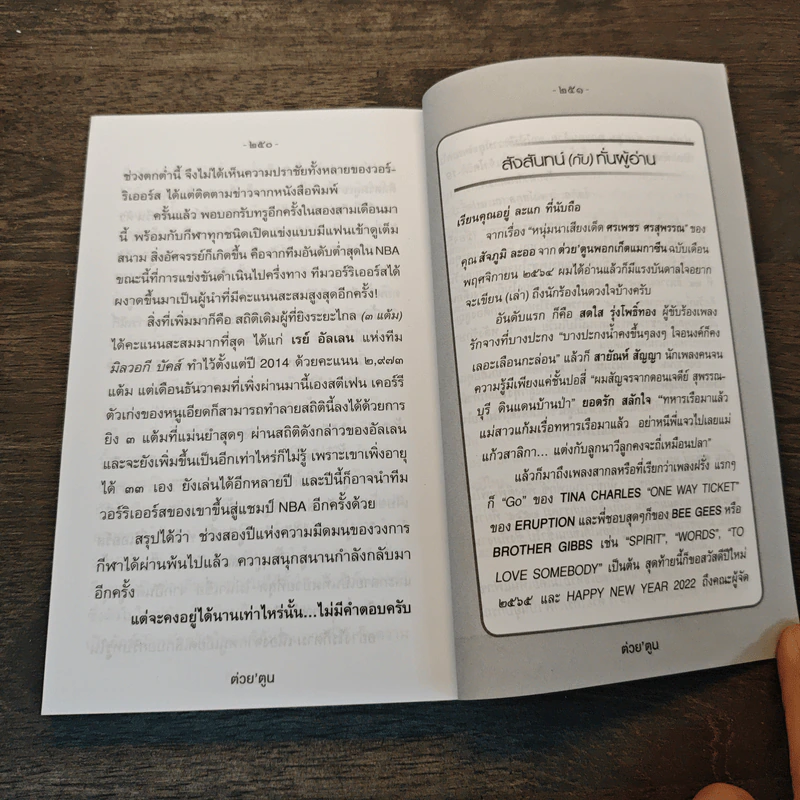 - ๒๕๐ -
ช่วงตกต่ำนี้ จึงไม่ได้เห็นความปราชัยทั้งหลายของวอร์-
ริเออร์ส ได้แต่ติดตามข่าวจากหนังสือพิมพ์
ครั้นแล้ว พอบอกรับทรูอีกครั้งในสองสามเดือนมา
นี้ พร้อมกับกีฬาทุกชนิดเปิดแข่งแบบมีแฟนเข้าดูเต็ม
สนาม สิ่งอัศจรรย์ก็เกิดขึ้น คือจากทีมอันดับต่ำสุดใน NBA
ขณะนี้ที่การแข่งขันดำเนินไปครึ่งทาง ทีมวอร์ริเออร์สได้
ผงาดขึ้นมาเป็นผู้นำที่มีคะแนนสะสมสูงสุดอีกครั้ง!
สิ่งที่เพิ่มมาก็คือ สถิติเดิมผู้ที่ยิงระยะไกล (๓ แต้ม)
ได้คะแนนสะสมมากที่สุด ได้แก่ เรย์ อัลเลน แห่งทีม
มิลวอกี บัคส์ ทำไว้ตั้งแต่ปี 2014 ด้วยคะแนน ๒,๙๗๓
แต้ม แต่เดือนธันวาคมที่เพิ่งผ่านมานี้เองสตีเฟน เคอร์รี
ตัวเก่งของหนูเอียดก็สามารถทำลายสถิตินี้ลงได้ด้วยการ
ยิง ๓ แต้มที่แม่นยำสุดๆ ผ่านสถิติดังกล่าวของอัลเลน
และจะยังเพิ่มขึ้นเป็นอีกเท่าไหร่ก็ไม่รู้ เพราะเขาเพิ่งอายุ
ได้ ๓๓ เอง ยังเล่นได้อีกหลายปี และปีนี้ก็อาจนำทีม
วอร์ริเออร์สของเขาขึ้นสู่แชมป์ NBA อีกครั้งด้วย
สรุปได้ว่า ช่วงสองปีแห่งความมืดมนของวงการ
กีฬาได้ผ่านพ้นไปแล้ว ความสนุกสนานกำลังกลับมา
อีกครั้ง
แต่จะคงอยู่ได้นานเท่าไหร่นั้น...ไม่มีคำตอบครับ
ต่วย'ตูน
- ๒๕๑ -
สังสันทน์ (กับ) ท่านผู้อ่าน
เรียนคุณอยู่ ละแก ที่นับถือ
จากเรื่อง "หนุ่มนาเสียงเด็ด ศรเพชร ศรสุพรรณ" ของ
คุณ สัจภูมิ ละออ จาก ต่วย'ตูนพอกเก็ตแมกาซีน ฉบับเดือน
พฤศจิกายน ๒๕๖๔ ผมได้อ่านแล้วก็มีแรงบันดาลใจอยาก
จะเขียน (เล่า) ถึงนักร้องในดวงใจบ้างครับ
อันดับแรก ก็คือ สดใส รุ่งโพธิ์ทอง ผู้ขับร้องเพลง
รักจางที่บางปะกง "บางปะกงน้ำคงขึ้นๆลงๆ ใจอนงค์ก็คง
เลอะเลือนกะล่อน" แล้วก็ สายัณห์ สัญญา นักเพลงคนจน
ความรู้มีเพียงแค่ชั้นปอสี่ "ผมสัญจรจากดอนเจดีย์ สุพรรณ-
บุรี ดินแดนบ้านป่า" ยอดรัก สลักใจ "ทหารเรือมาแล้ว
แม่สาวแก้มเรื่อทหารเรือมาแล้ว อย่าหนีพี่แจวไปเลยแม่
แก้วสาลิกา... แต่งกับลูกนาวีลูกคงจะถี่เหมือนปลา"
แล้วก็มาถึงเพลงสากลหรือที่เรียกว่าเพลงฝรั่ง แรกๆ
ก็ "Go" ของ TINA CHARLES "ONE WAY TICKET"
ของ ERUPTION และที่ชอบสุดๆก็ของ BEE GEES หรือ
BROTHER GIBBS เช่น "SPIRIT", "WORDS", "TO
LOVE SOMEBODY" เป็นต้น สุดท้ายนี้ก็ขอสวัสดีปีใหม่
๒๕๖๕ และ HAPPY NEW YEAR 2022 ถึงคณะผู้จัด
ต่วย'ตูน